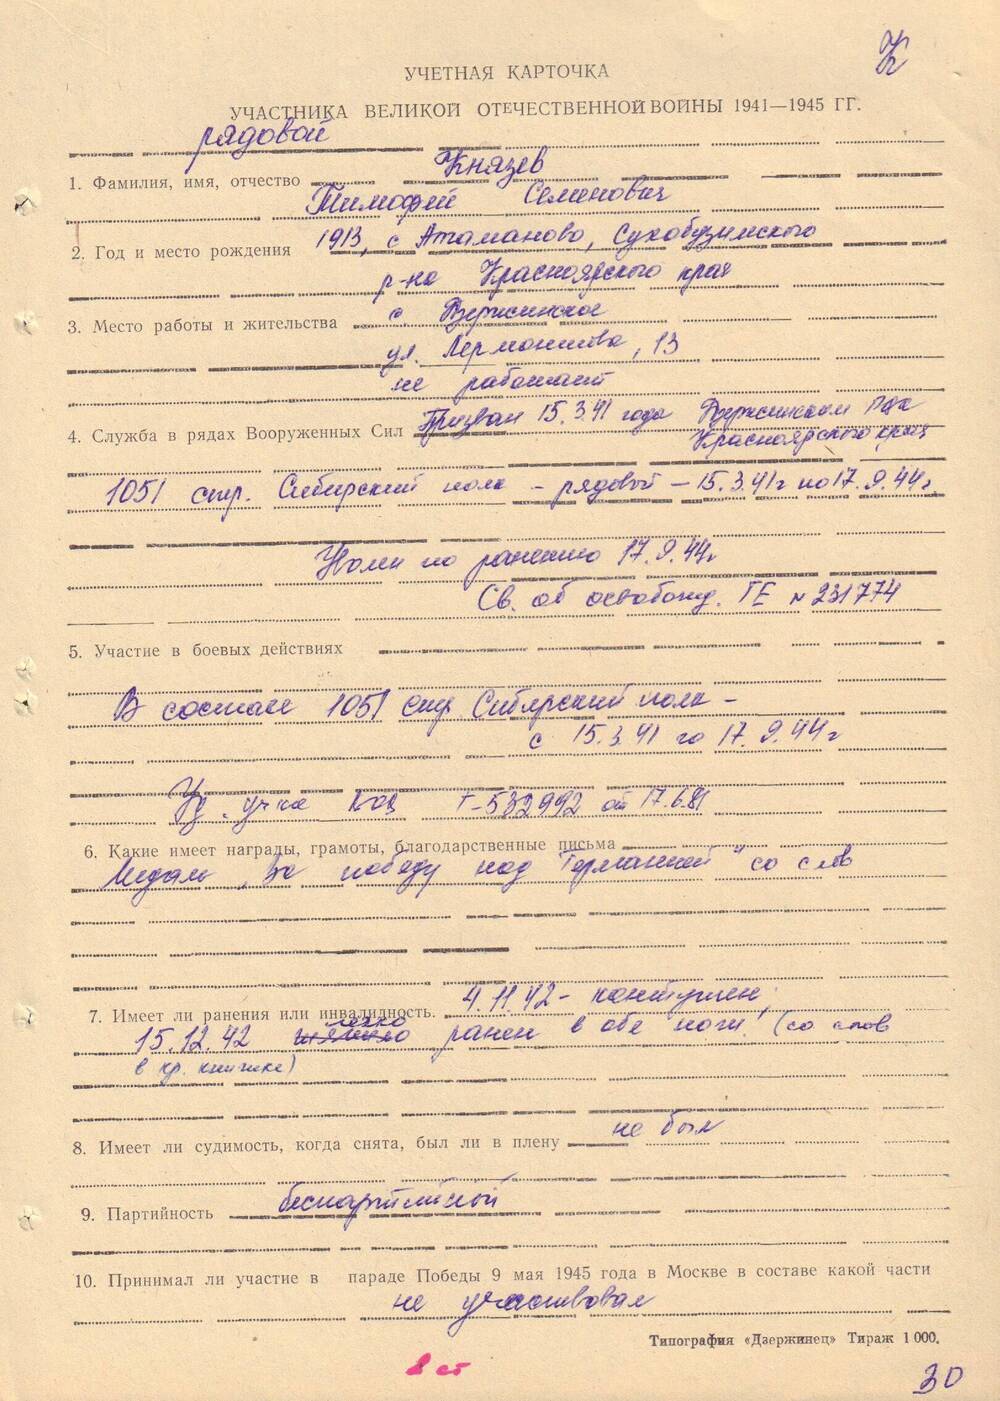 К
УЧЕТНАЯ КАРТОЧКА
УЧАСТНИКА ВЕЛИКОЙ ОТЕЧЕСТВЕННОЙ ВОЙНЫ 1941—1945 ГГ.
рядовой
1. Фамилия, имя, отчество Князев
Тимофей Семенович
2. Год и место рождения 1913, с Атаманово, Сухобузимского
р-на Красноярского края
3. Место работы и жительства с.
ул. Лермонтова, 13
не работает
4. Служба в рядах Вооруженных Сил Призван 15.3.41 года
Красноярского края
1051 стр. Сибирский полк – рядовой – 15.3.41г по 17.9.44г,
по ранению 17.9.44г
Св. об освобожд. ГЕ № 231774
5. Участие в боевых действиях
В составе 1051 стр. Сибирский полк –
с 15.3.41 по 17.9.44г
Уд. уч-ка Т-532992 от 17.6.81
6. Какие имеет награды, грамоты, благодарственные письма
Медаль „За победу над Германией" со слов
7. Имеет ли ранения или инвалидность. 4.11.42 – контужен;
легко
15.12.42 ранен в обе ноги. (со слов
в кр. книжке)
8. Имеет ли судимость, когда снята, был ли в плену не был
9. Партийность беспартийной
10. Принимал ли участие в параде Победы 9 мая 1945 года в Москве в составе какой части
не участвовал
Типография «Дзержинец» Тираж 1 000.
в ст
30